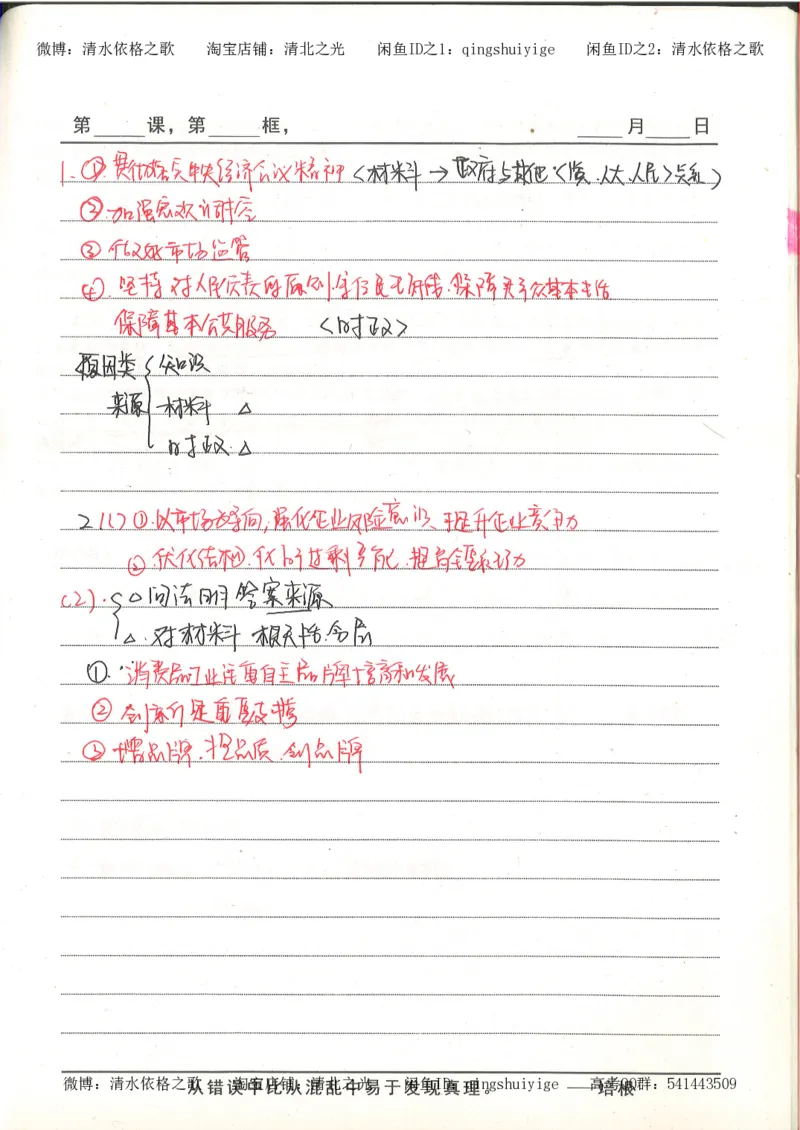 微博：清水依格之歌 淘宝店铺：清北之光 闲鱼ID之1：qingshuiyige 闲鱼ID之2：清水依格之歌
第 课，第 框， 月 日
1. ① 贯彻落实中央经济会议精神〈材料→政府与其他〈党.人大.人民〉关系〉
② 加强宏观调控
③ 市场监管
④. 坚持对人民负责的原则. 保障群众基本生活
保障基本公共服务 〈时政〉
原因类 { 知识
来源 材料 △
时政. △
2 (1) ①.以市场为导向,强化企业风险意识、提升企业竞争力
② 优化结构.化解过剩产能.提高全要素
(2). { △ 问法明答案来源
△. 对材料 相关性.含后
①. 消费品工业注重自主品牌培育和发展
② 创新是重要支撑
③ 增品牌.提品质.创品牌
微博：清水依格之歌 淘宝店铺：清北之光 闲鱼ID：qingshuiyige 高考QQ群：541443509
从错误中比从混乱中易于发现真理。 ——培根